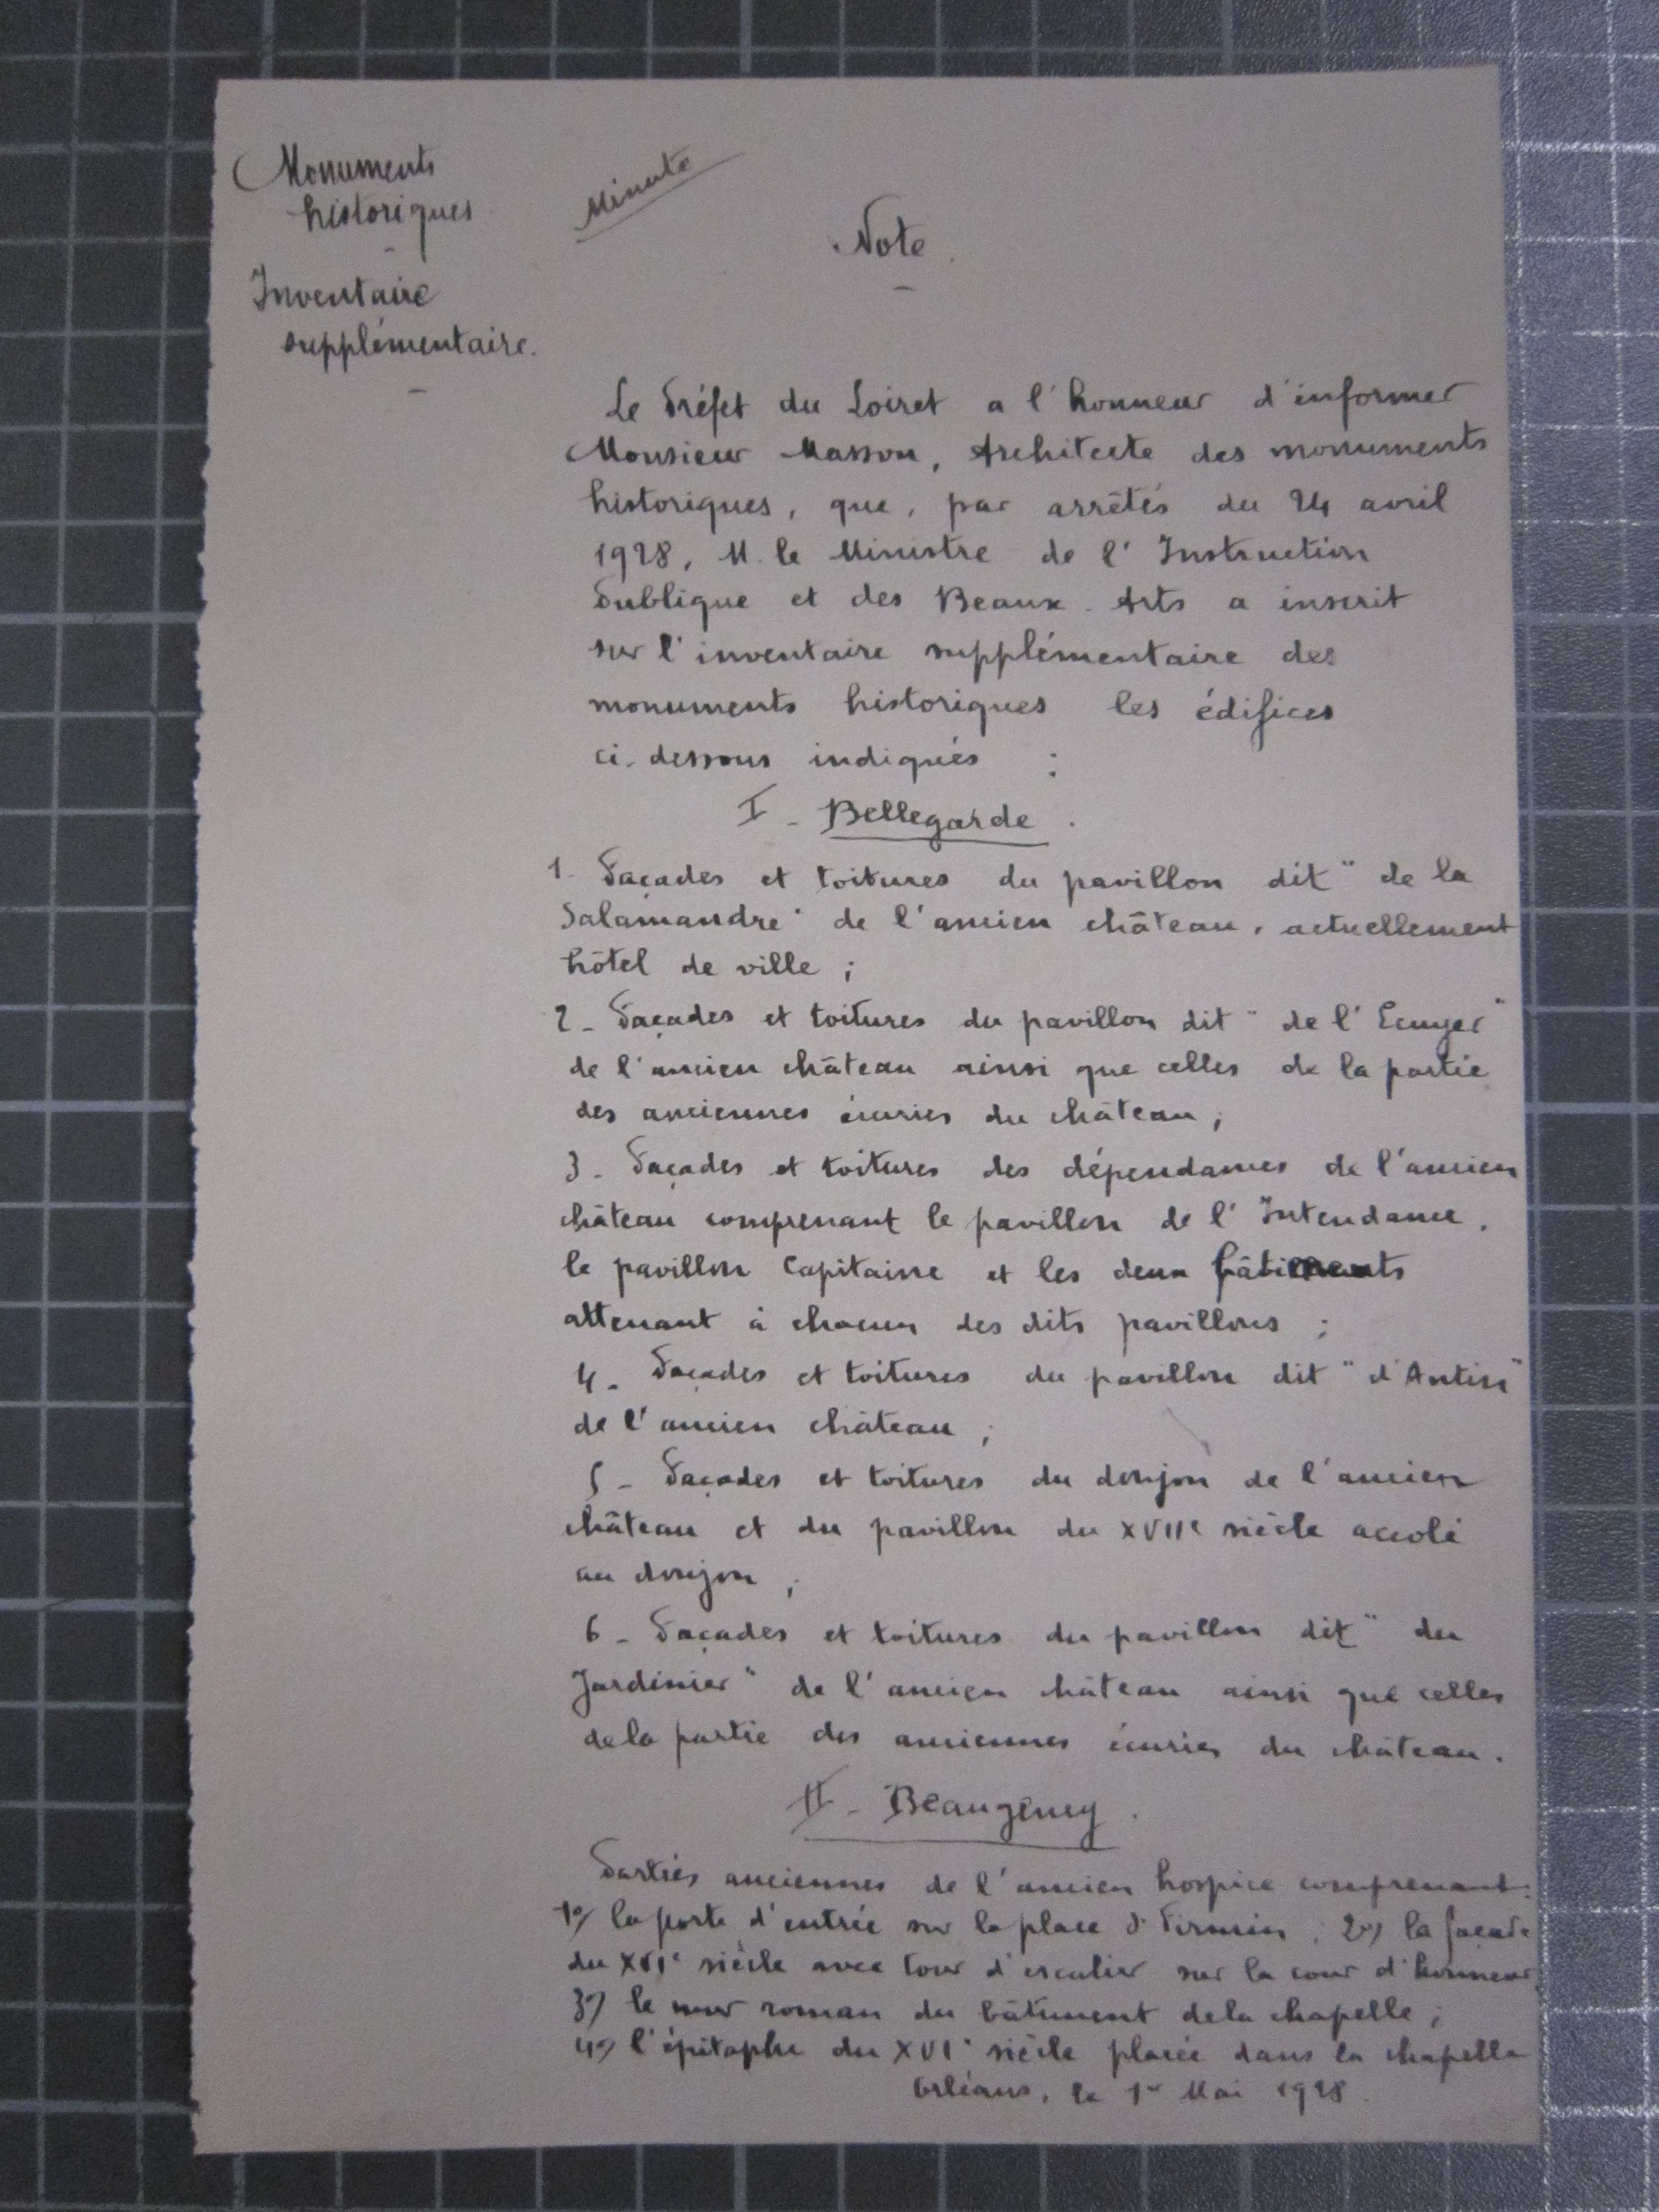 Monuments
historiques
Inventaire
supplémentaire.
Minute
Note.
Le Préfet du Loiret a l'honneur d'informer
Monsieur Masson, Architecte des monuments
historiques, que, par arrêtés du 24 avril
1928, M. le Ministre de l'Instruction
Publique et des Beaux-Arts a inscrit
sur l'inventaire supplémentaire des
monuments historiques les édifices
ci-dessous indiqués :
I - Bellegarde.
1- Façades et toitures du pavillon dit "de la
Salamandre" de l'ancien château, actuellement
hôtel de ville ;
2- Façades et toitures du pavillon dit "de l'Ecuyer"
de l'ancien château ainsi que celles de la partie
des anciennes écuries du château ;
3- Façades et toitures des dépendances de l'ancien
château comprenant le pavillon de l'Intendance,
le pavillon Capitaine et les deux bâtiments
attenant à chacun des dits pavillons ;
4- Façades et toitures du pavillon dit "d'Antin"
de l'ancien château ;
5- Façades et toitures du donjon de l'ancien
château et du pavillon du XVIIe siècle accolé
au donjon ;
6- Façades et toitures du pavillon dit "du
Jardinier" de l'ancien château ainsi que celles
de la partie des anciennes écuries du château.
II - Beaugency.
Parties anciennes de l'ancien hospice comprenant :
1°/ la porte d'entrée sur la place St Firmin ; 2°/ la façade
du XVIe siècle avec tour d'escalier sur la cour d'honneur
3°/ le mur roman du bâtiment de la chapelle ;
4°/ l'épitaphe du XVIe siècle placée dans la chapelle
Orléans, le 1er Mai 1928.